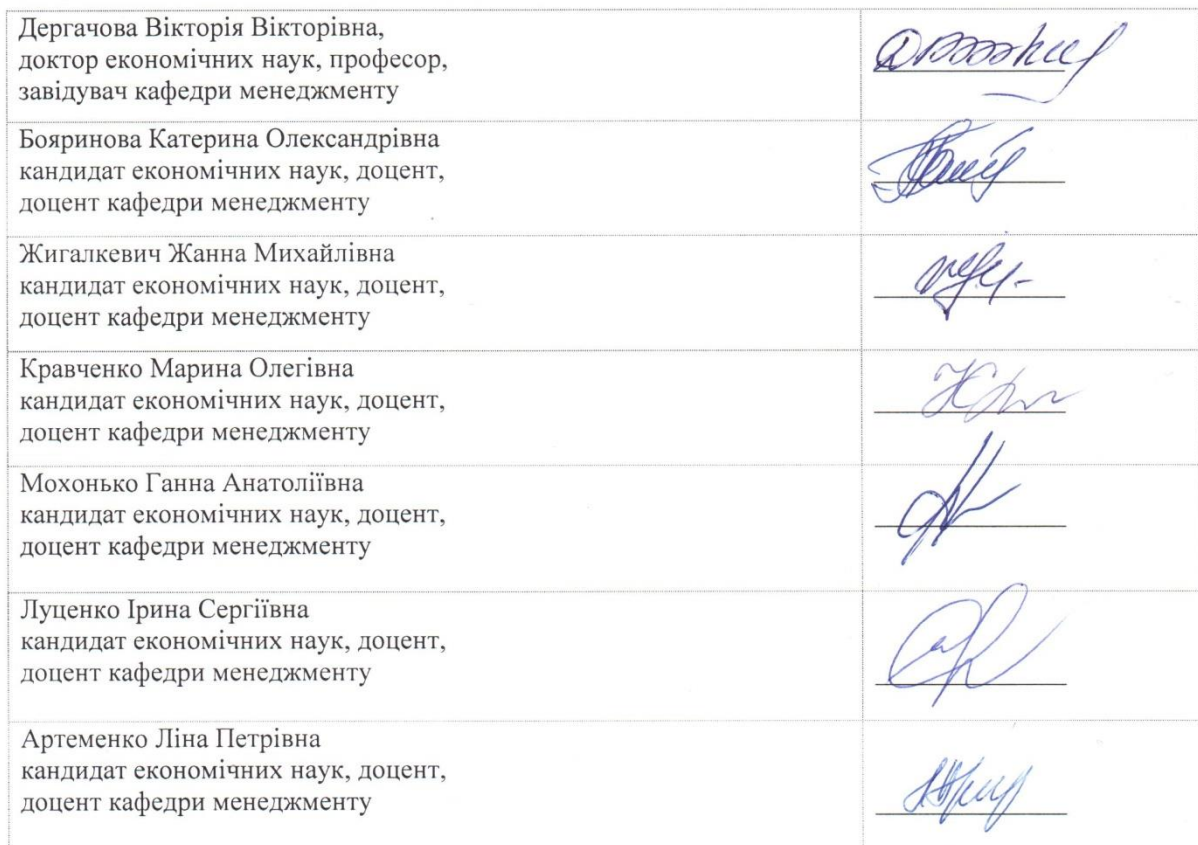 Дергачова Вікторія Вікторівна,
доктор економічних наук, професор,
завідувач кафедри менеджменту
Бояринова Катерина Олександрівна
кандидат економічних наук, доцент,
доцент кафедри менеджменту
Жигалкевич Жанна Михайлівна
кандидат економічних наук, доцент,
доцент кафедри менеджменту
Кравченко Марина Олегівна
кандидат економічних наук, доцент,
доцент кафедри менеджменту
Мохонько Ганна Анатоліївна
кандидат економічних наук, доцент,
доцент кафедри менеджменту
Луценко Ірина Сергіївна
кандидат економічних наук, доцент,
доцент кафедри менеджменту
Артеменко Ліна Петрівна
кандидат економічних наук, доцент,
доцент кафедри менеджменту